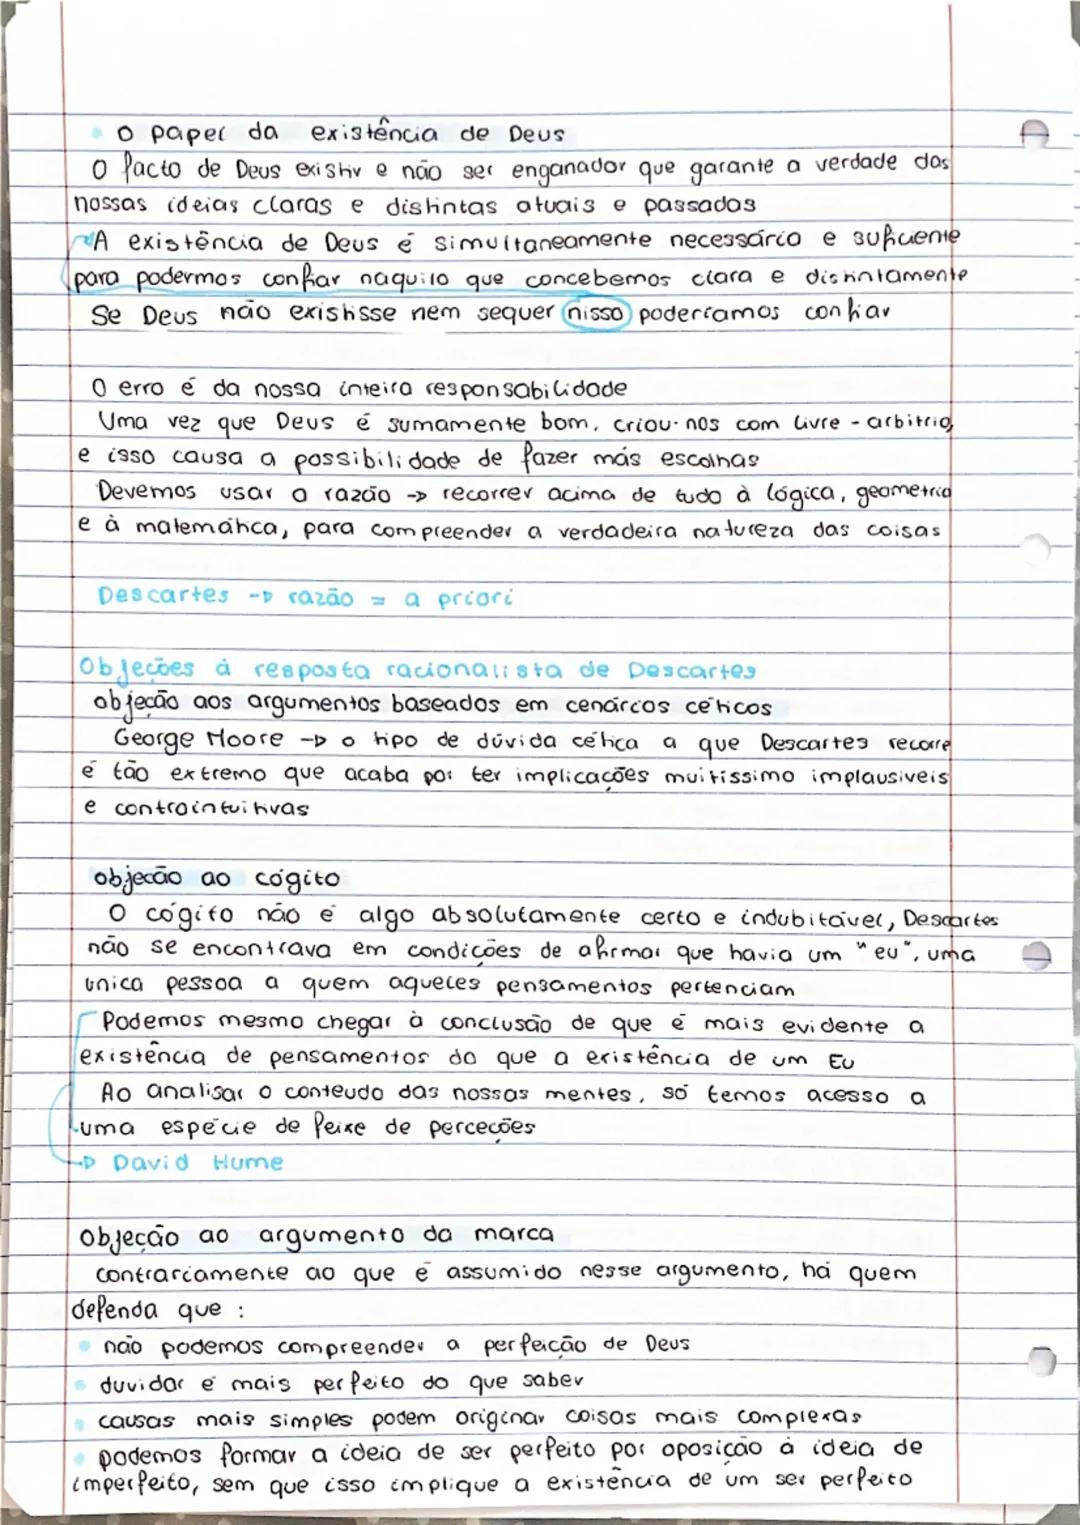 • O papel da existência de Deus
O facto de Deus existir e não ser enganador que garante a verdade das
nossas ideias claras e distintas atuais e passadas
→ A existência de Deus é simultaneamente necessário e suficiente
para podermos confiar naquilo que concebemos clara e distintamente
Se Deus não existisse nem sequer nisso poderíamos confiar
O erro é da nossa inteira responsabilidade
Uma vez que Deus é sumamente bom, criou-nos com livre-arbítrio,
e isso causa a possibilidade de fazer más escolhas
Devemos usar a razão → recorrer acima de tudo à lógica, geometria
e à matemática, para compreender a verdadeira natureza das coisas
Descartes → razão = a priori
Objeções à resposta racionalista de Descartes
objeção aos argumentos baseados em cenários céticos
George Moore → o tipo de dúvida cética a que Descartes recorre
é tão extremo que acaba por ter implicações muitíssimo implausíveis
e contraintuitivas
objecão ao cógito
O cógito não é algo absolutamente certo e indubitável, Descartes
não se encontrava em condições de afirmar que havia um "eu", uma
única pessoa a quem aqueles pensamentos pertenciam
Podemos mesmo chegar à conclusão de que é mais evidente a
existência de pensamentos do que a existência de um Eu
Ao analisar o conteudo das nossas mentes, só temos acesso a
uma espécie de feixe de perceções
→ David Hume
objeção ao argumento da marca
contrariamente ao que é assumido nesse argumento, há quem
defenda que :
• não podemos compreender a perfeição de Deus
• duvidar é mais perfeito do que saber
• causas mais simples podem originar coisas mais complexas
• podemos formar a ideia de ser perfeito por oposição à ideia de
imperfeito, sem que isso implique a existência de um ser perfeito